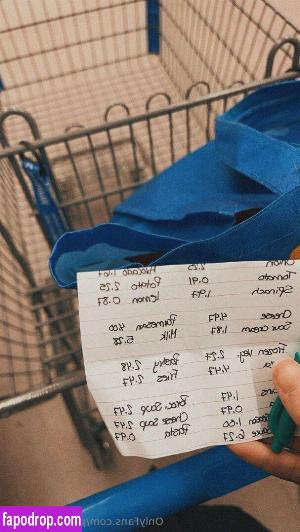 Onion 2.25 Avocado 1.67
Tomato 0.91 Potato 2.25
Spinach 1.97 Lemon 0.87
Cheese 4.97 Parmesan 4.00
Sour cream 1.87 Milk 5.28
Frozen veg. 2.27 Pastry 2.98
4.47 Fries 2.47
1.47 Broc. Soup 2.47
0.97 Cheese Soup 2.47
1.00 Pasta 0.97
6.27
OnlyFans.com/
fapodrop.com https://fapodrop.com